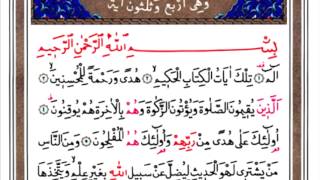 وهى اربع وثلثون اية
بِسْمِ اللّٰهِ الرَّحْمٰنِ الرَّحِيمِ
الٓمٓ ۝١ تِلْكَ اٰيَاتُ الْكِتَابِ الْحَكِيمِ ۝٢ هُدًى وَرَحْمَةً لِلْمُحْسِنِينَ ۝٣
اَلَّذِينَ يُقِيمُونَ الصَّلٰوةَ وَيُؤْتُونَ الزَّكٰوةَ وَهُمْ بِالْاٰخِرَةِ هُمْ يُوقِنُونَ ۝٤
اُولٰٓئِكَ عَلٰى هُدًى مِنْ رَبِّهِمْ وَاُولٰٓئِكَ هُمُ الْمُفْلِحُونَ ۝٥ وَمِنَ النَّاسِ
مَنْ يَشْتَرِى لَهْوَ الْحَدِيثِ لِيُضِلَّ عَنْ سَبِيلِ اللّٰهِ بِغَيْرِ عِلْمٍ وَيَتَّخِذَهَا